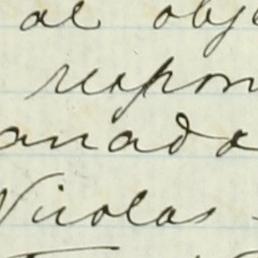 al obje
respon
anada
Nicolas